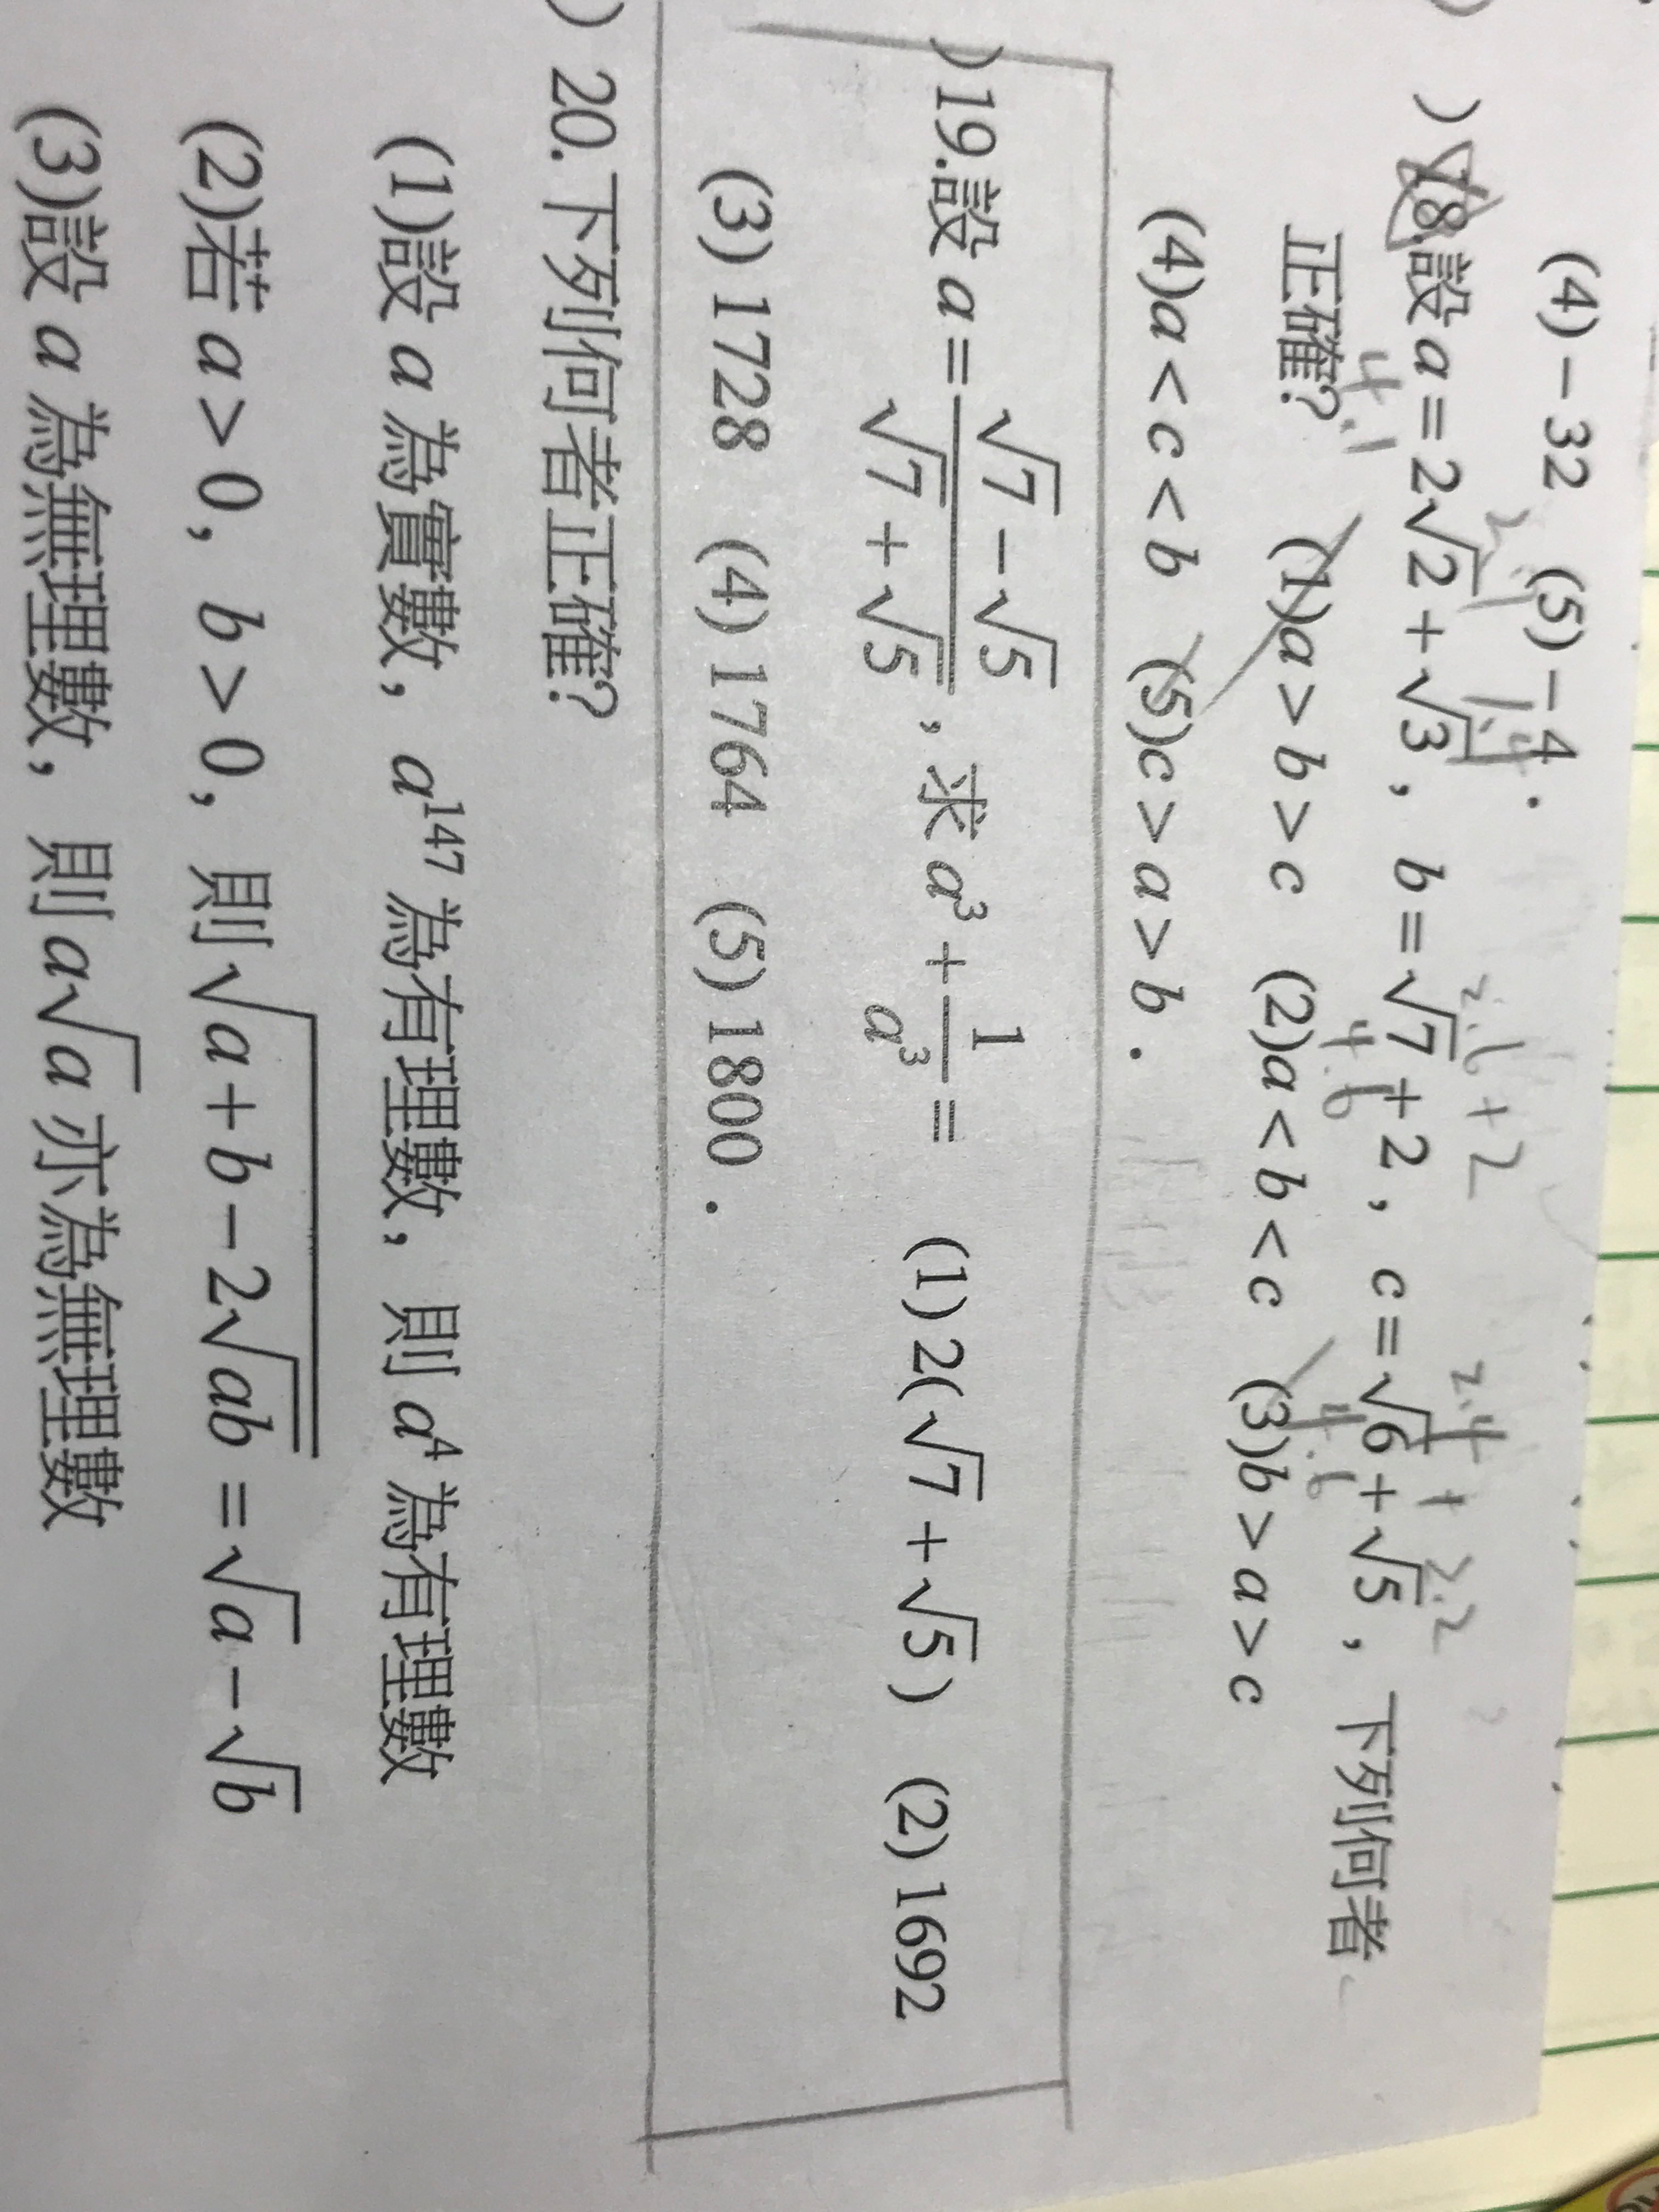 (4)－32 (5)－4．
)18.設 a＝2√2＋√3，b＝√7＋2，c＝√6＋√5，下列何者
正確？ (1)a＞b＞c (2)a＜b＜c (3)b＞a＞c
(4)a＜c＜b (5)c＞a＞b．
)19.設 a＝(√7－√5)/(√7＋√5)，求 a³＋1/a³＝ (1) 2(√7＋√5) (2) 1692
(3) 1728 (4) 1764 (5) 1800．
) 20.下列何者正確？
(1)設 a 為實數，a¹⁴⁷ 為有理數，則 a⁴ 為有理數
(2)若 a＞0，b＞0，則√(a＋b－2√ab)＝√a－√b
(3)設 a 為無理數，則 a√a 亦為無理數